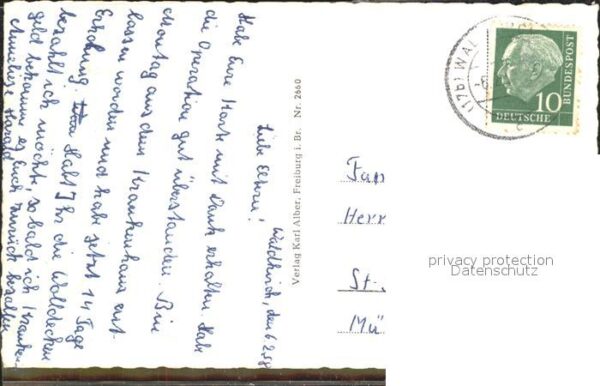 Waldkirch, den 6.2.58
Liebe Eltern!
Habe Eure Karte mit Dank erhalten. Habe
die Operation gut überstanden. Bin
Montag aus dem Krankenhaus ent-
lassen worden und habe jetzt 14 Tage
Erholung. Habt Ihr die Wolldecken
bezahlt ich möchte, sobald ich Kranken-
geld bekomme es Euch zurück bezahlen
Verlag Karl Alber, Freiburg i. Br. Nr. 2660
(17b) WAL
10
DEUTSCHE
BUNDESPOST
Fam
Herr
St-
Mü
privacy protection
Datenschutz